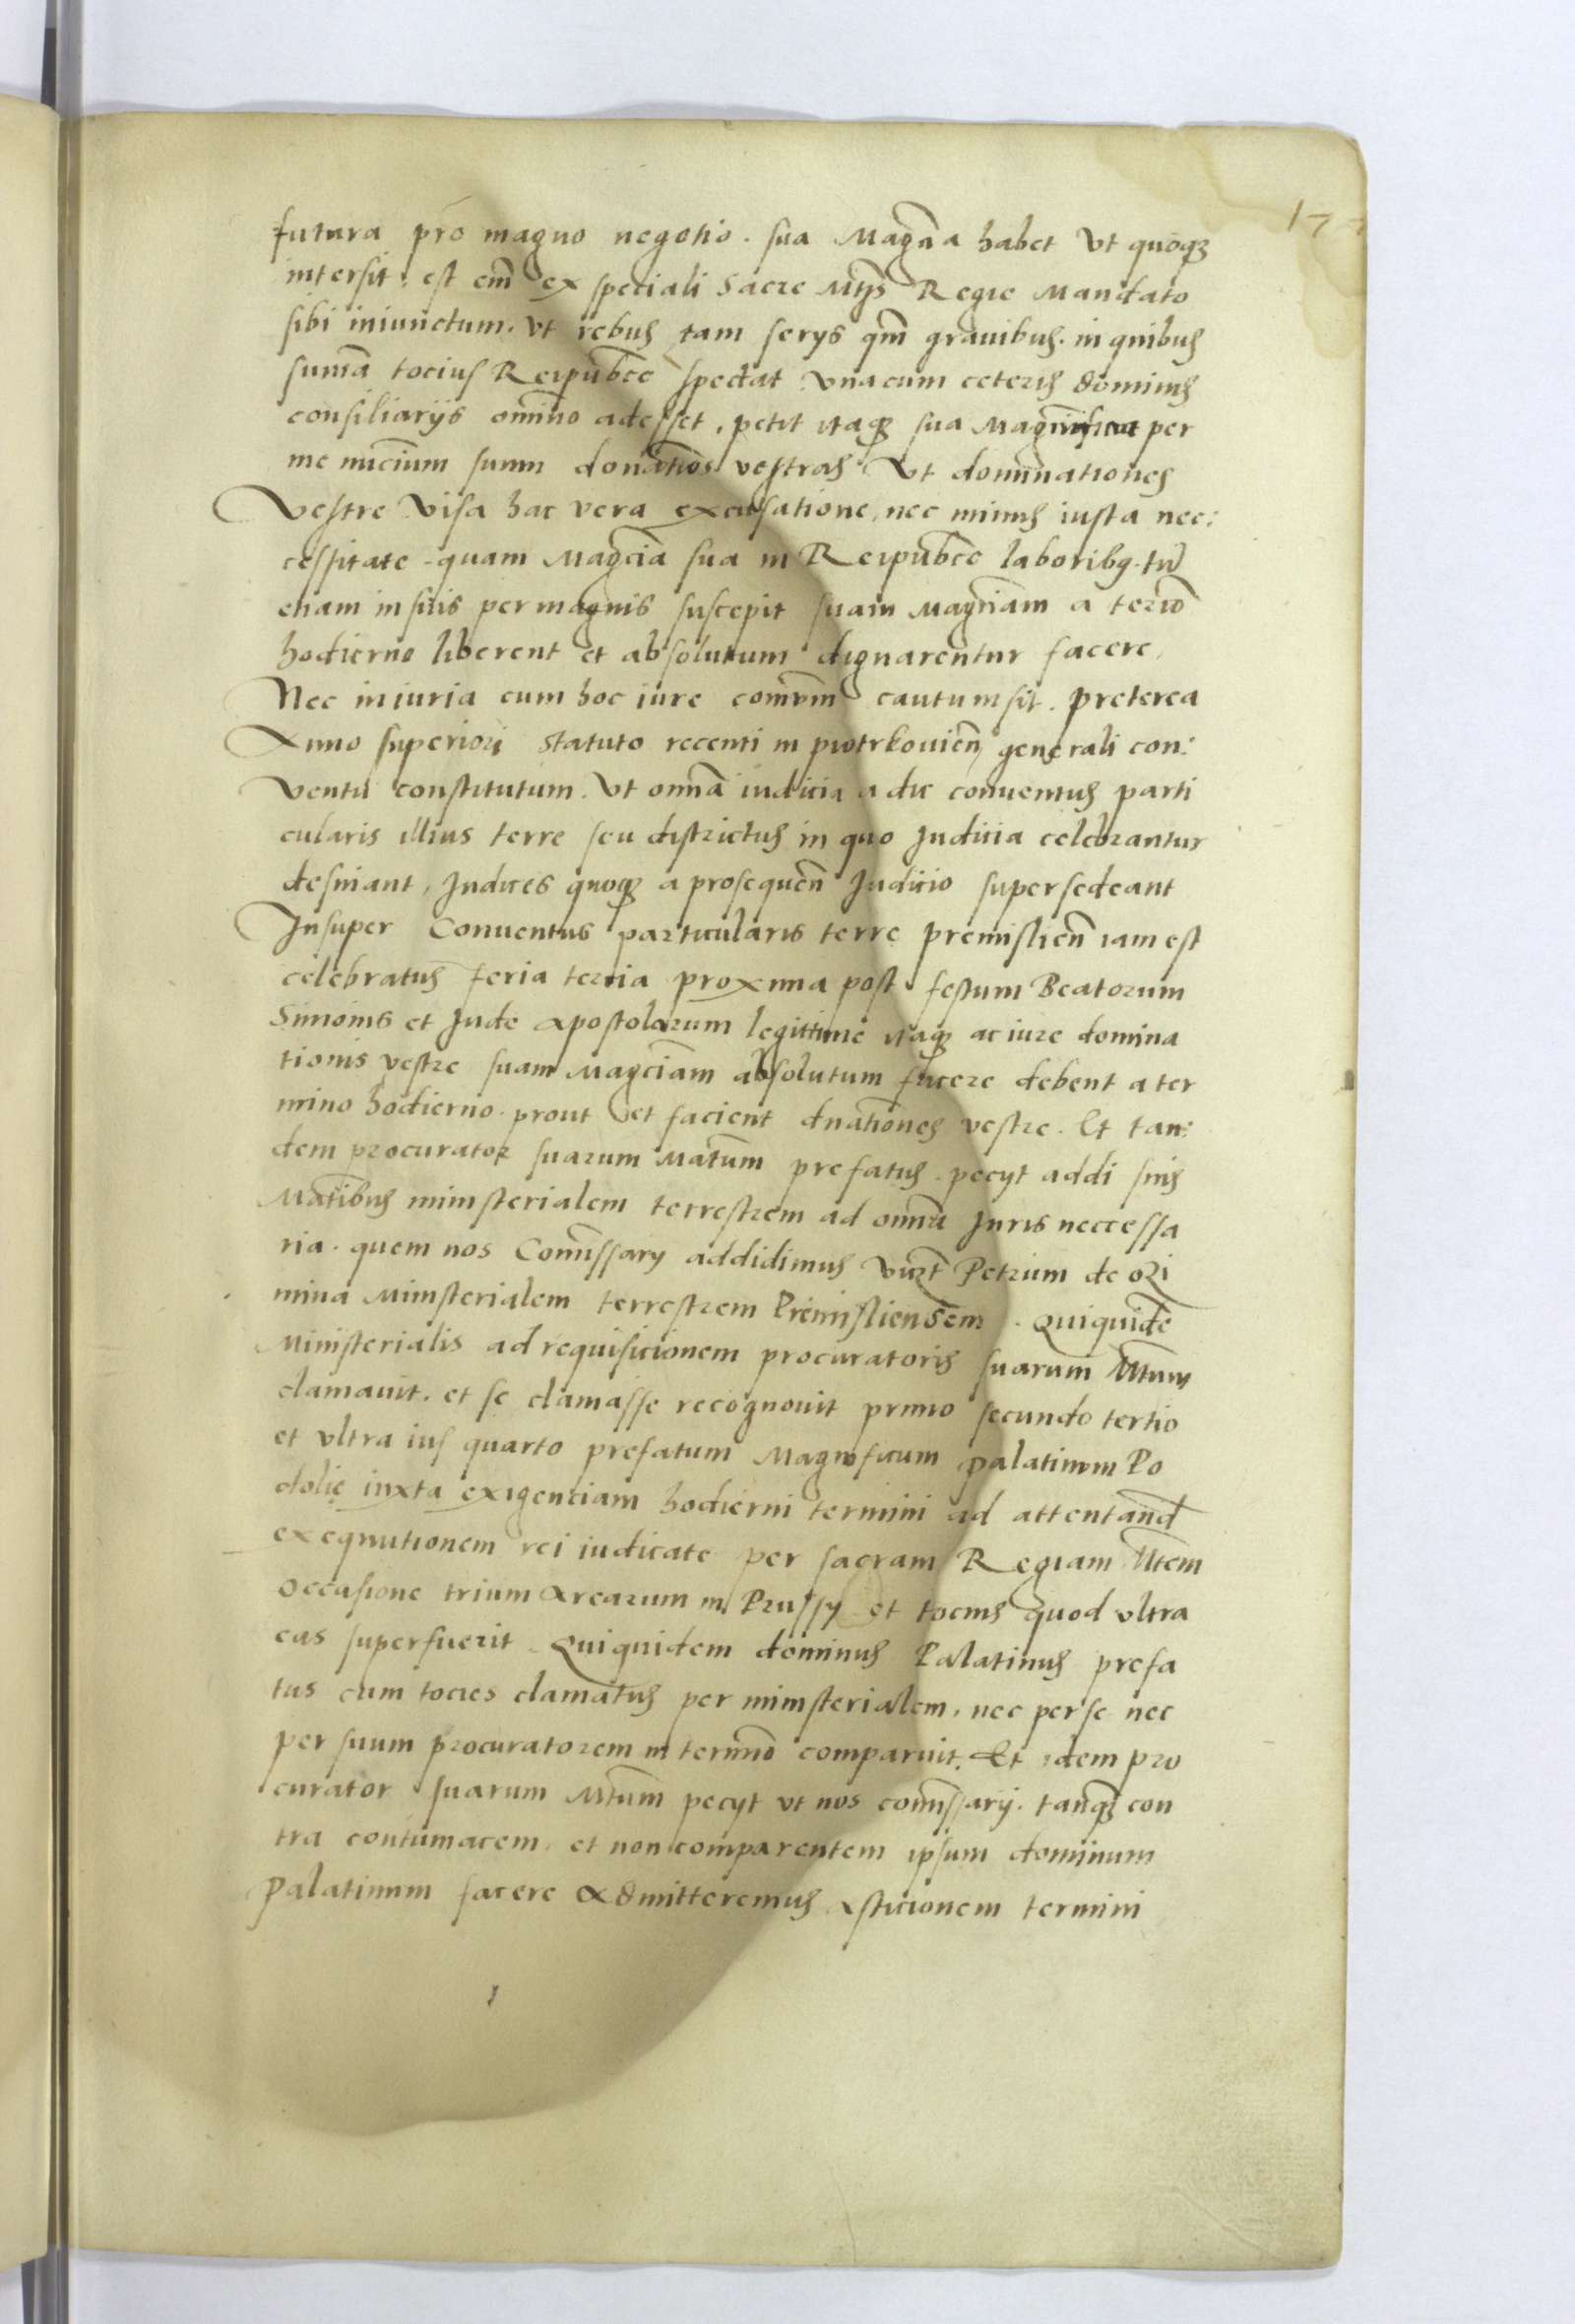 177
futura pro magno negotio. sua Magñia habet Vt quoqȝ
intersit, est em̃ ex speciali Sacre Mtis̃ Regie Mandato
sibi iniunctum. Vt rebus tam serys qm̃ grauibus. in quibus
sum̃a tocius Reipub̃ce spectat vnacum ceteris dominis
consiliariis om̃ino adesset, petit itaqȝ sua Magnifica per
me nuncium suum don̄atiões vestras Vt dominationes
Vestre Visa hac vera excusatione, nec minus iusta nec:
cessitate quam Magc̃ia sua in Reipub̃ce laboribȝ. tũ
etiam in suis permagnis suscepit suam Magc̃iam a ter̃io
hodierno liberent et absolutum dignarentur facere,
Nec iniuria cum hoc iure com̃uni cautum sit. preterea
Anno superiori statuto recenti in piotrkouieñ generali con:
Ventu constitutum. Vt omñia iudicia a die conuentus parti
cularis illius terre seu districtus in quo Iudicia celebrantur
desinant, Iudices quoqȝ a prosequeñ Iudicio supersedeant
Insuper Conuentus particularis terre premislieñ iam est
celebratus feria tercia proxima post festum Beatorum
Simonis et Iude apostolorum legittime itaqȝ ac iure domina
tionis vestre suam Magc̃iam absolutum facere debent a ter
mino hodierno. prout et facient dnãtiones vestre. Et tan:
dem procurator suarum Mat̃um prefatus. pecyt addi suis
Mat̃ibus ministerialem terrestrem ad omnia Iuris neccessa
ria. quem nos Com̃issary addidimus vid̃zt Petrum de
mina Ministerialem terrestrem Premisliensem. Quiquidẽ
Ministerialis ad requisicionem procuratoris suarum Mt̃um
clamauit. et se clamasse recognouit primo secundo tertio
et vltra ius quarto prefatum Magnificum palatinum Po
dolie iuxta exigenciam hodierni termini ad attentand̃
exequutionem rei iudicate per sacram Regiam Mt̃em
occasione trium Arearum in Prussy et tocius quod vltra
eas superfuerit. Quiquidem dominus Palatinus prefa
tus cum tocies clamatus per ministerialem, nec per se nec
per suum procuratorem in termiño comparuit. Et idem pro
curator suarum Mt̃um pecyt vt nos com̃issarij. tanqȝ con
tra contumacem. et non comparentem ipsum dominum
Palatinum facere Admitteremus Asticionem termini